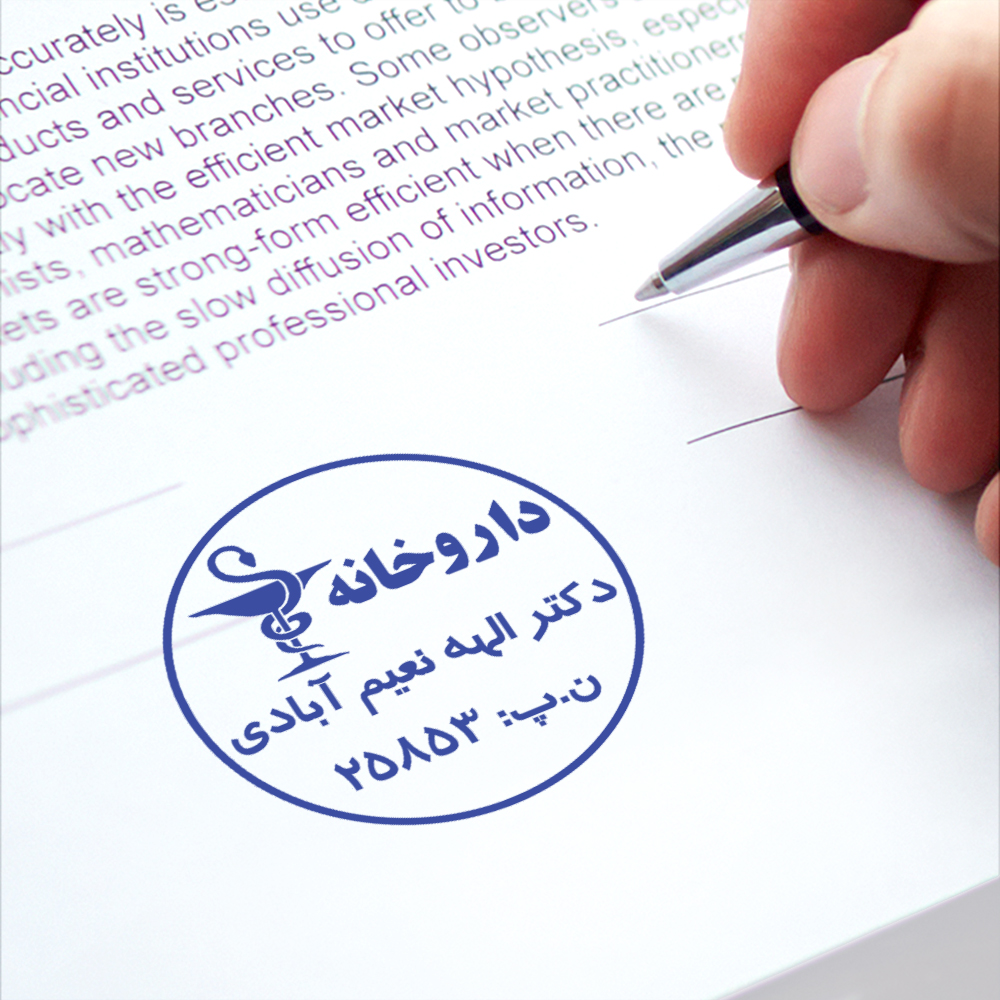 ccurately is es
ncial institutions use
ducts and services to offer to
ocate new branches. Some observers
ly with the efficient market hypothesis, especi
ists, mathematicians and market practitioners
ets are strong-form efficient when there are
uding the slow diffusion of information, the
ophisticated professional investors.
داروخانه
دکتر الهه نعیم آبادی
ن.پ: ۲۵۸۵۳